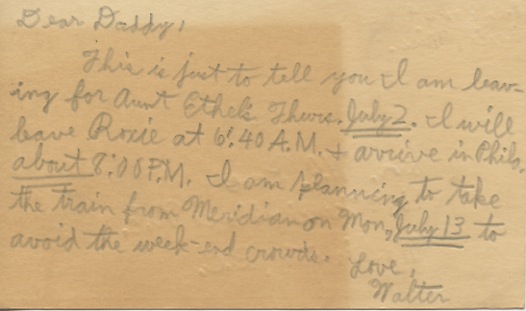 Dear Daddy,
This is just to tell you I am leav-
ing for Aunt Ethel's Thurs. July 2. I will
leave Roxie at 6:40 A.M. + arrive in Phila.
about 8:00 P.M. I am planning to take
the train from Meridian on Mon, July 13 to
avoid the week-end crowds.
Love,
Walter